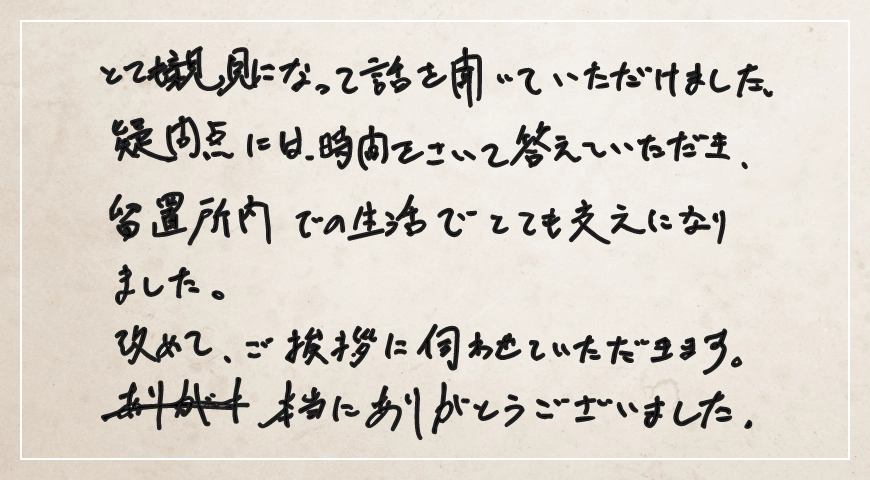 とても親身になって話を聞いていただけました。
疑問点には、時間をさいて答えていただき、
留置所内での生活でとても支えになり
ました。
改めて、ご挨拶に伺わせていただきます。
本当にありがとうございました。